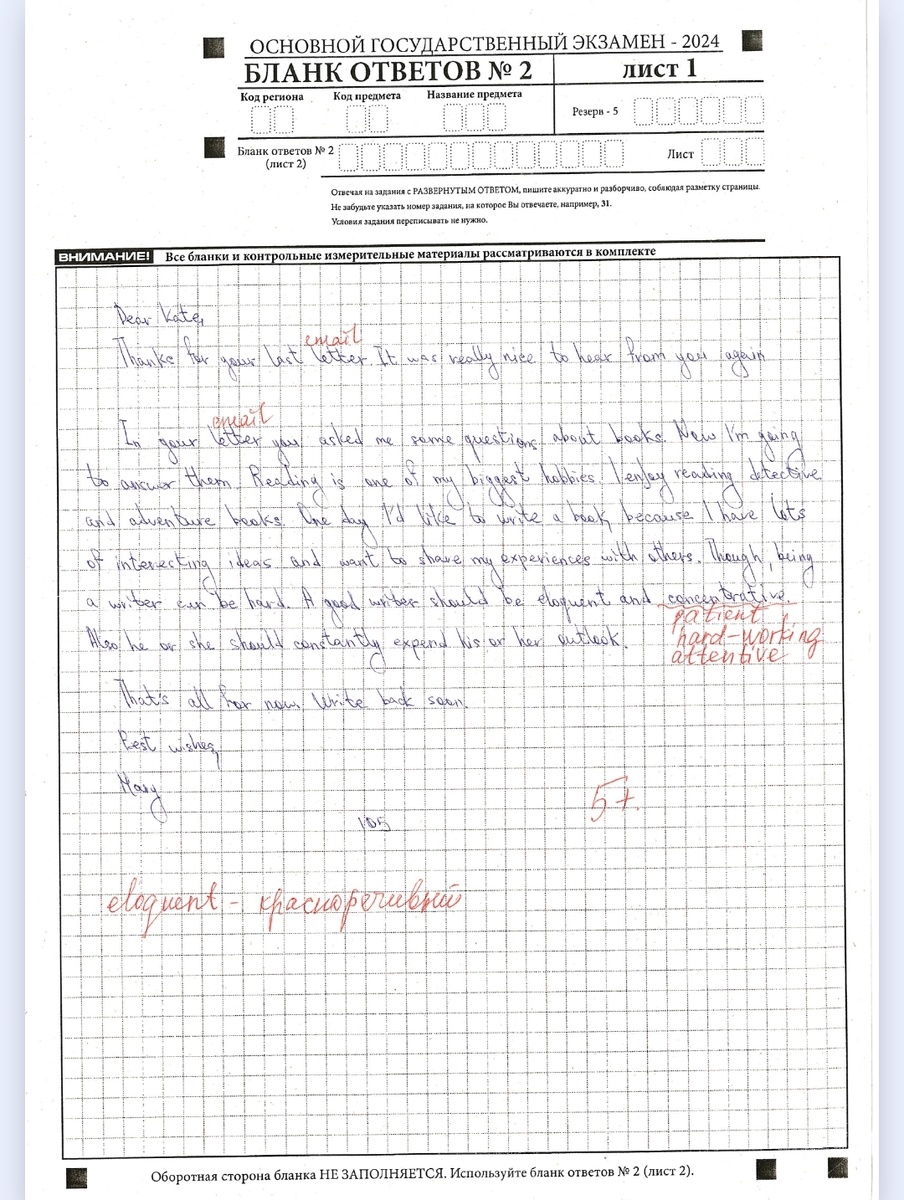 ОСНОВНОЙ ГОСУДАРСТВЕННЫЙ ЭКЗАМЕН - 2024
БЛАНК ОТВЕТОВ № 2
ЛИСТ 1
Код региона
Код предмета
Название предмета
Резерв - 5
Бланк ответов № 2
(лист 2)
Лист
Отвечая на задания с РАЗВЕРНУТЫМ ОТВЕТОМ, пишите аккуратно и разборчиво, соблюдая разметку страницы.
Не забудьте указать номер задания, на которое Вы отвечаете, например, 31.
Условия задания переписывать не нужно.
ВНИМАНИЕ! Все бланки и контрольные измерительные материалы рассматриваются в комплекте
Dear Kate,
email
Thanks for your last letter. It was really nice to hear from you again
email
In your letter you asked me some questions about books. Now I'm going
to answer them. Reading is one of my biggest hobbies. I enjoy reading detective
and adventure books. One day I'd like to write a book because I have lots
of interesting ideas and want to share my experiences with others. Though, being
a writer can be hard. A good writer should be eloquent and concentrative.
patient
Also he or she should constantly expend his or her outlook.
hard-working
attentive
That's all for now. Write back soon.
Best wishes,
Mary
105
5+.
eloquent - красноречивый
Оборотная сторона бланка НЕ ЗАПОЛНЯЕТСЯ. Используйте бланк ответов № 2 (лист 2).